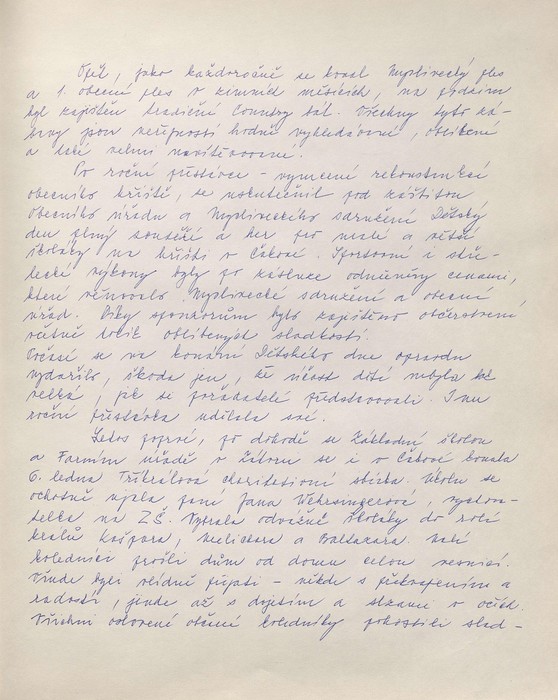 Opět, jako každoročně se konal Myslivecký ples
a 1. obecní ples v zimních měsících, na podzim
byl zajištěn tradiční Country bál. Všechny tyto zá-
bavy jsou veřejností hodně vyhledávané, oblíbené
a také velmi navštěvované.
Po roční přestávce - vynucené rekonstrukcí
obecního hřiště, se uskutečnil pod záštitou
Obecního úřadu a Mysliveckého sdružení Dětský
den plný soutěží a her pro malé a větší
školáky na hřišti v Čakově. Sportovní i stře-
lecké výkony byly po zásluze odměněny cenami,
které věnovalo Myslivecké sdružení a obecní
úřad. Díky sponzorům bylo zajištěno občerstvení
včetně tolik oblíbených sladkostí.
Počasí se na konání Dětského dne opravdu
vydařilo, škoda jen, že účast dětí nebyla tak
velká, jak si pořadatelé představovali. I tu
roční přestávka udělala své.
Letos poprvé, po dohodě se Základní školou
a Farním úřadě v Žátoru se i v Čakově konala
6. ledna Tříkrálová charitativní sbírka. Úkolu se
ochotně ujala paní Jana Wehrsingerová, vychova-
telka na ZŠ. Vybrala odvážné školáky do rolí
králů Kašpara, Melichara a Baltazara. Naši
koledníci prošli dům od domu celou vesnicí.
Všude byli vlídně přijati - někde s překvapením a
radostí, jinde až s dojetím a slzami v očích.
Všichni oslovení občané koledníky pohostili slad-